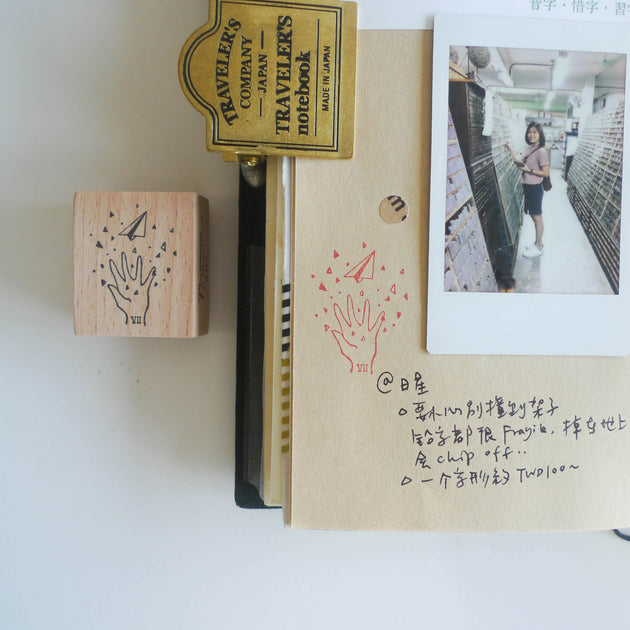 習字・借字・習
TRAVELER'S
COMPANY
JAPAN
TRAVELER'S
notebook
MADE IN JAPAN
m
VII
VII
@日星
○要小心别撞到架子
鉛字都很 Fragile, 掉在地上
會 chip off..
○一个字形約 TWD100~